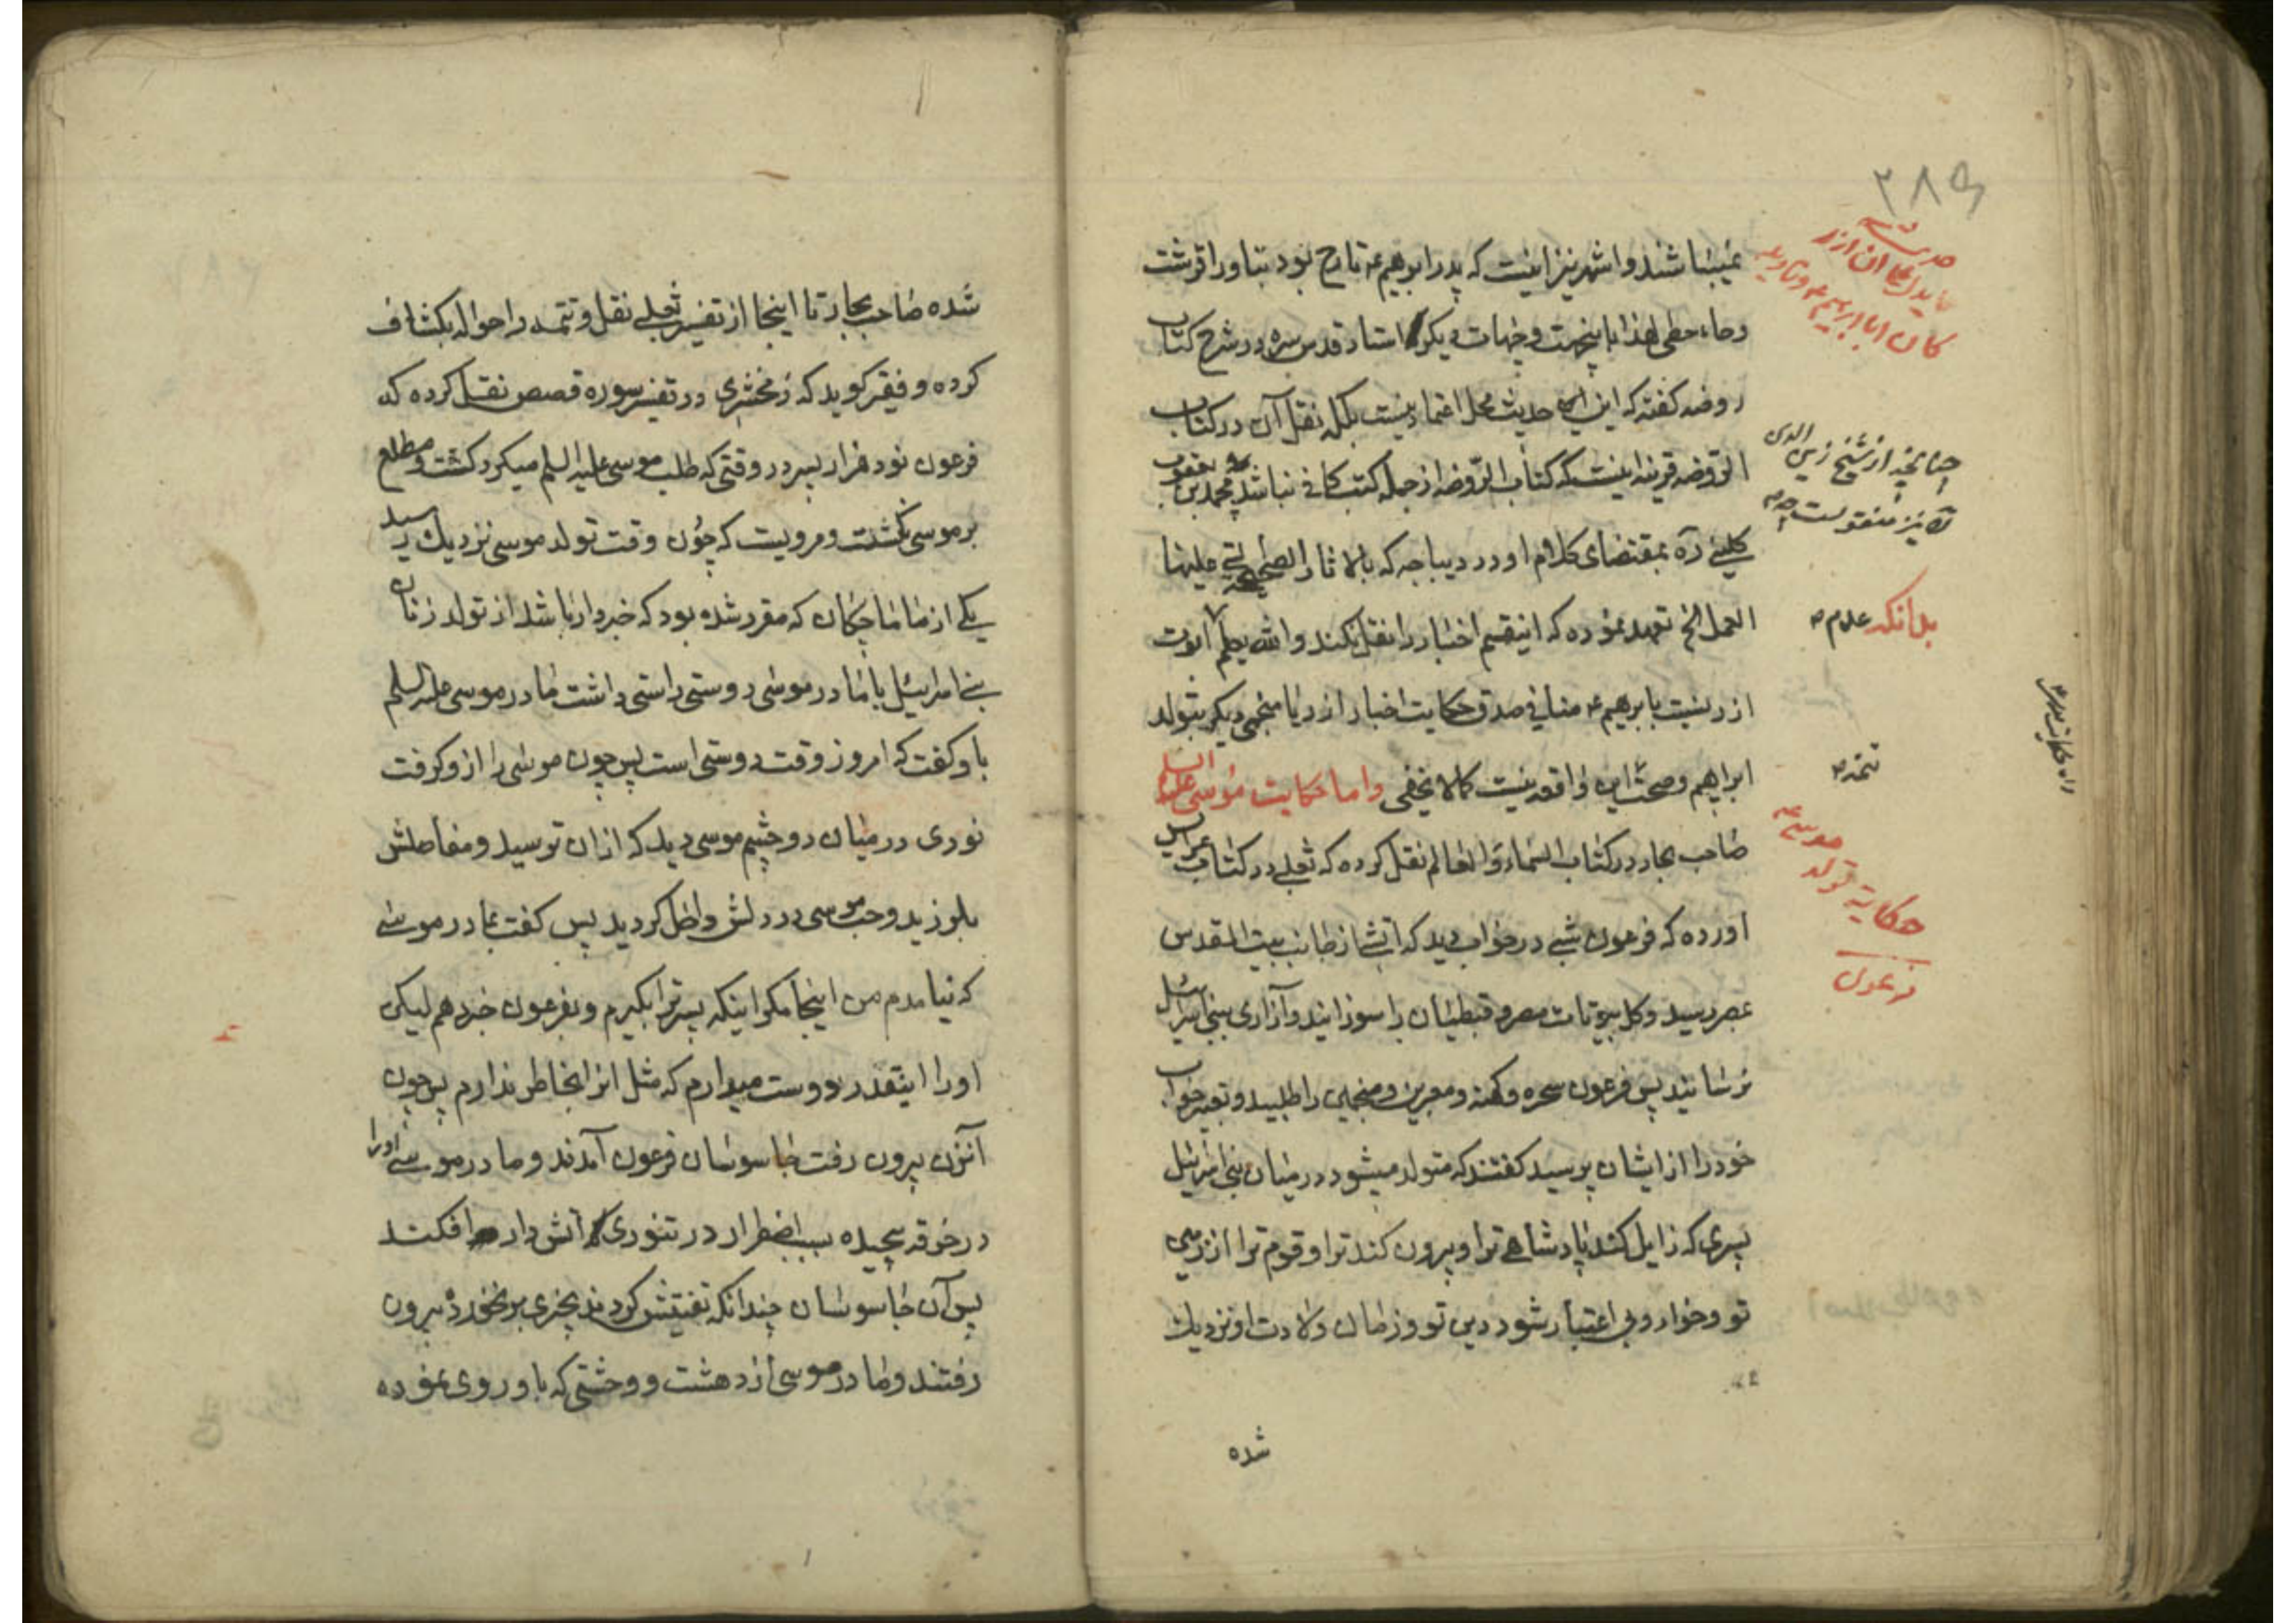 ۲۸۹
نمیباشند و اشهر نیز اینست که پدر ابرهیم ع تارح بود بتاء قرشت
وحاء حطی لهذا باینجهت وجهات دیکر استاد قدس سره در شرح کتاب
روضه کفته که این حدیث محل اعتماد نیست بلکه نقل آن در کتاب
الروضه قرینه اینست که کتاب الروضه از جمله کتب کافی نباشد چه محمد بن یعقوب
کلینی ره بمقتضای کلام او در دیباجه که بالاثار الصحیحه التی علیها
العمل الخ تعهد نموده که اینقسم اخبار را نقل نکند والله یعلم ابوت
ازر نسبت بابرهیم ع منافی صدق حکایت اخبار ازر یا منجمی دیکر بتولد
ابراهیم وصحت این واقعه نیست کما لا یخفی واما حکایت موسی علیه السلم
صاحب بحار در کتاب السماء والعالم نقل کرده که ثعلبی در کتاب عرایس
اورده که فرعون شبی در خواب دید که اتشی از جانب بیت المقدس
بمصر رسید وکل بیوتات مصر وقبطیان را سوزانید وآزاری ببنی اسرائیل
نرسانید پس فرعون سحره وکهنه ومعبرین ومنجمین را طلبید وتعبیر خواب
خود را از ایشان پرسید کفتند که متولد میشود در میان بنی اسرائیل
پسری که زایل کند پادشاهی ترا وبیرون کند ترا وقوم ترا از زمین
تو وخوار وبی اعتبار شود دین تو وزمان ولادت او نزدیک
شده
کان ابا ابرهیم ع
چنانچه از شیخ زین الدین
نیز منقولست
بلانکه علام
تتمه
حکایة تولد موسی ع
فرعون
شده صاحب بحار تا اینجا از تفسیر ثعلبی نقل وتتمه را حواله بکشاف
کرده وفقیر کوید که زمخشری در تفسیر سوره قصص نقل کرده که
فرعون نود هزار پسر در وقتی که طلب موسی علیه السلم میکرد کشت ومطلع
بر موسی نکشت ومرویست که چون وقت تولد موسی نزدیک رسید
یکی از ماماچکان که مقرر شده بود که خبردار باشد از تولد زنان
بنی اسرئیل با مادر موسی دوستی راستی داشت مادر موسی علیه السلم
باو کفت که امروز وقت دوستی است پس چون موسی را ازو کرفت
نوری در میان دو چشم موسی دید که ازان ترسید ومفاصلش
بلرزید وحب موسی در دلش داخل کردید پس کفت بمادر موسی
که نیامدم من اینجا مکر اینکه پسر ترا بکیرم وبفرعون خبر دهم لیکن
اورا اینقدر دوست میدارم که مثل انرا بخاطر ندارم پس چون
آنزن بیرون رفت جاسوسان فرعون آمدند ومادر موسی اورا
در خرقه پیچیده بسبب اضطرار در تنوری آتش دار افکند
پس آن جاسوسان چندانکه تفتیش کردند بچیزی بر نخورده بیرون
رفتند ومادر موسی از دهشت ووحشتی که باو روی نموده